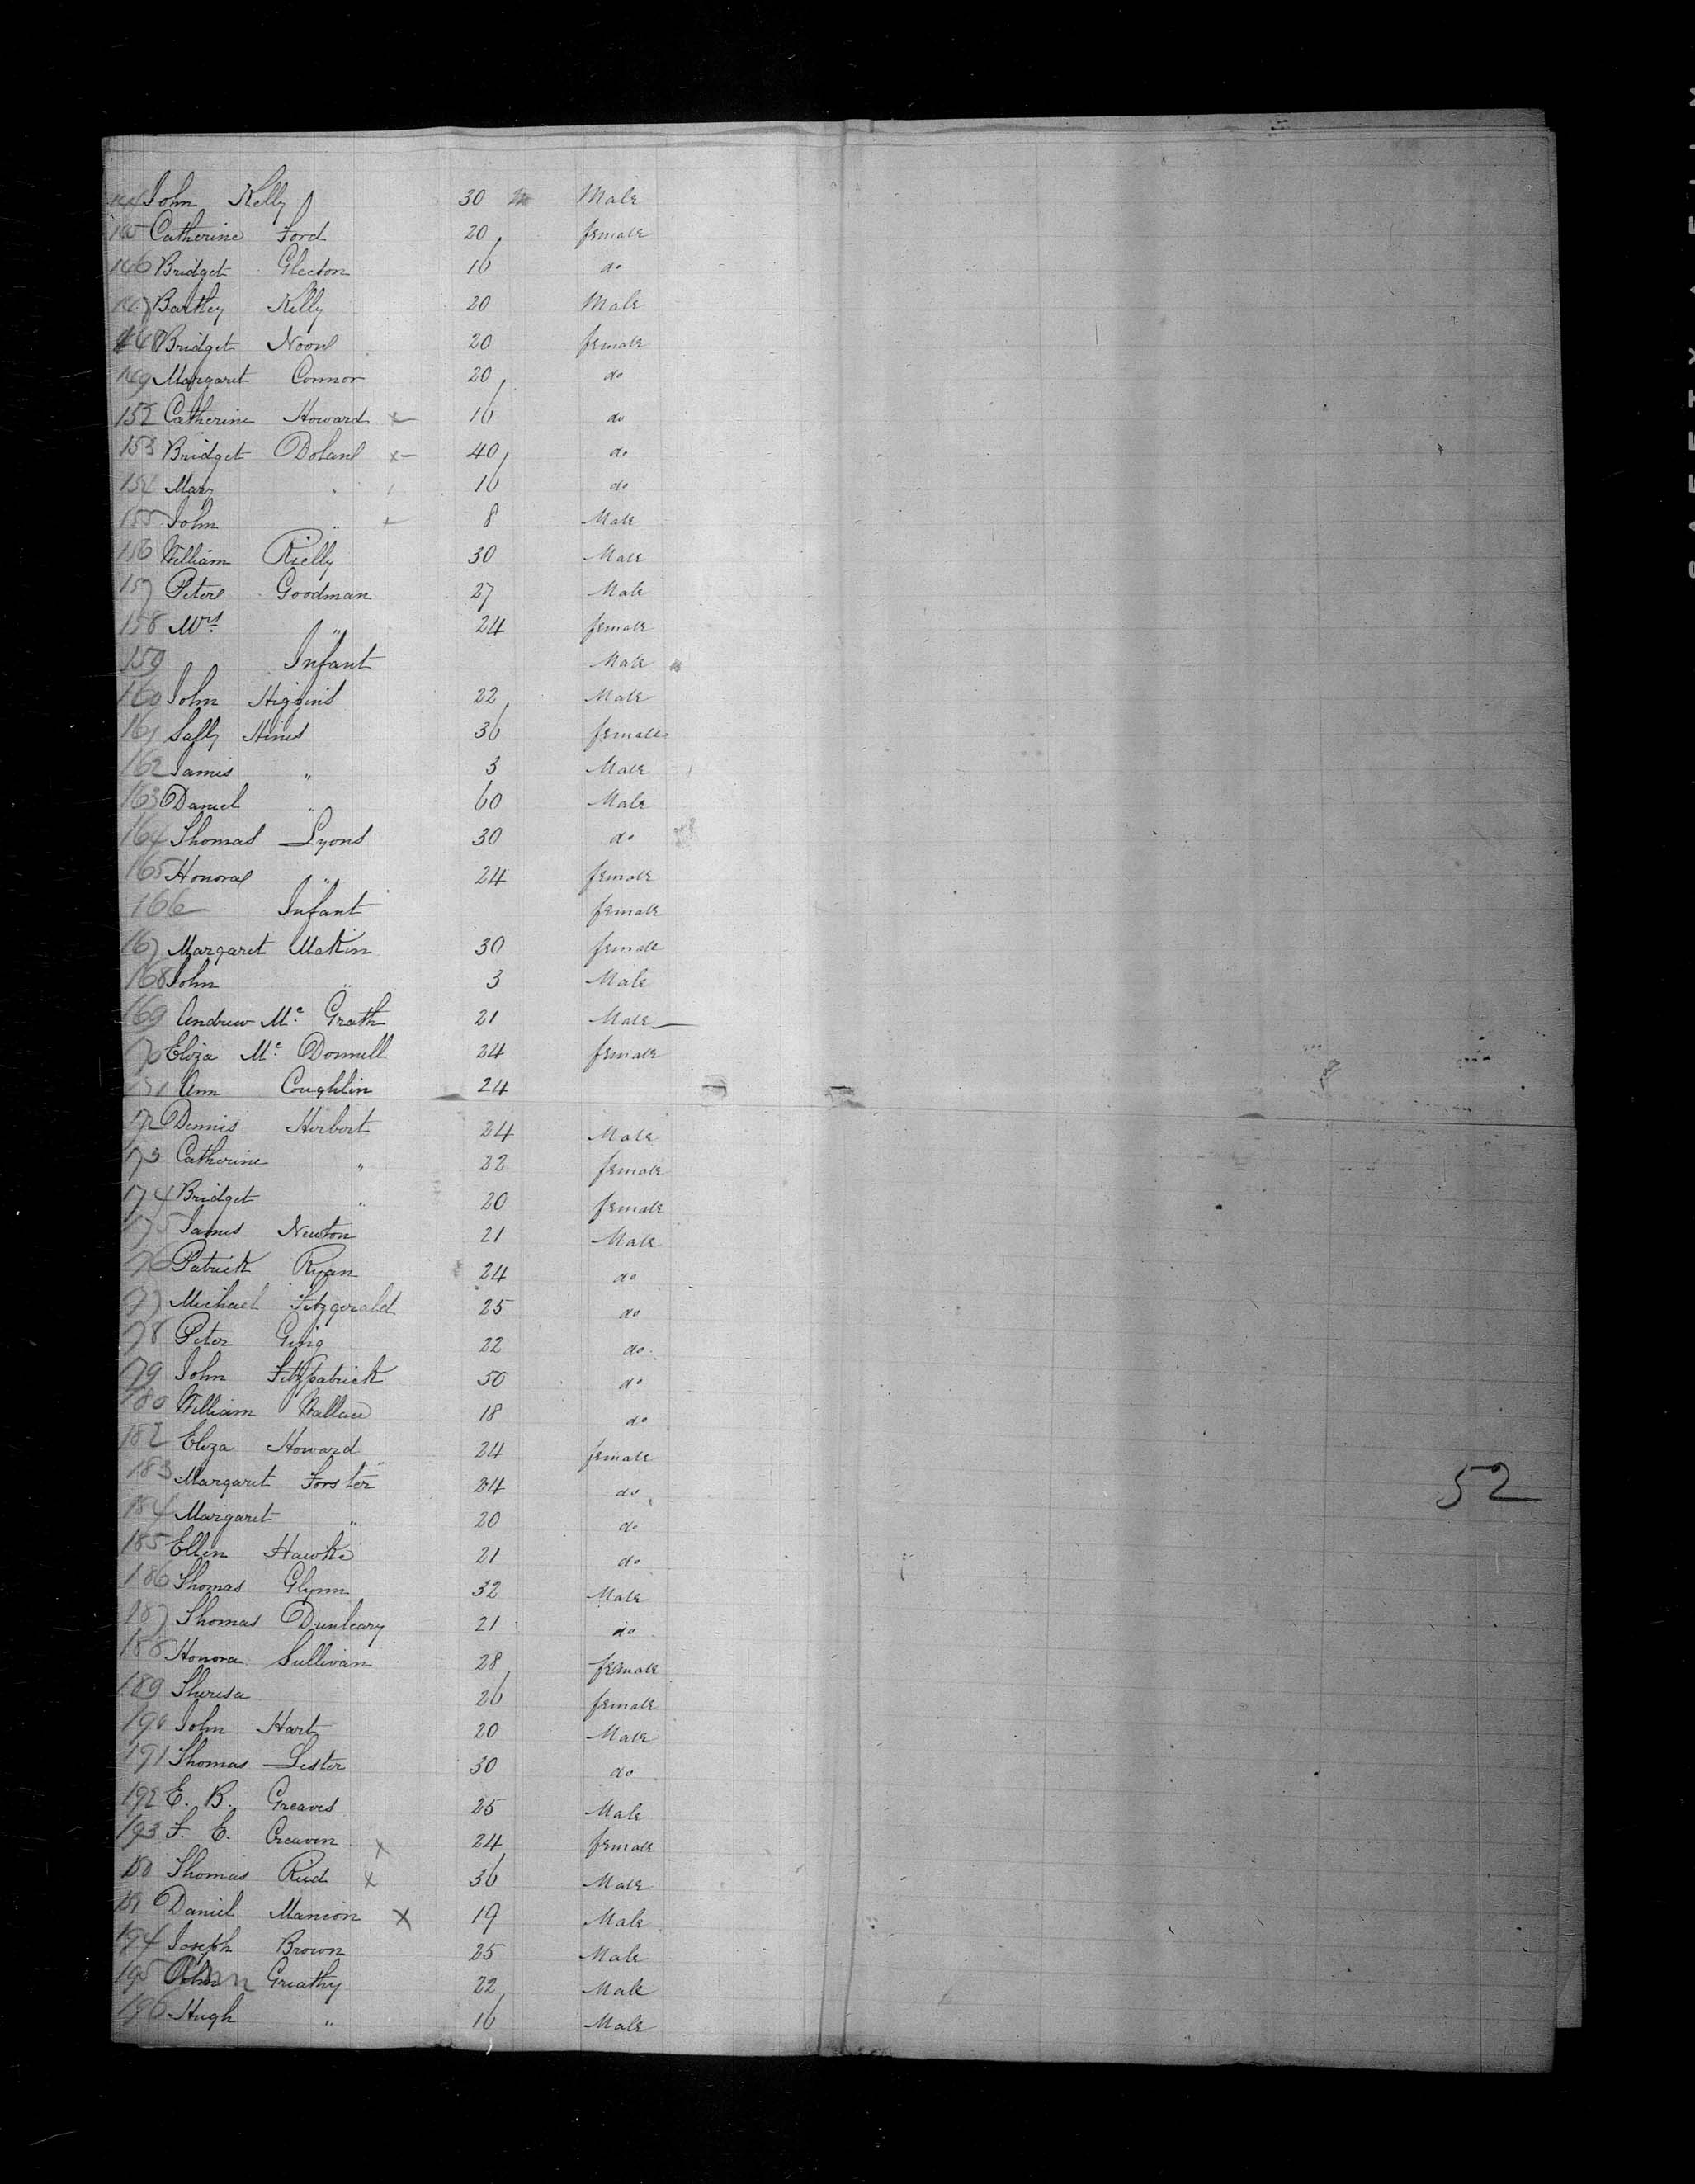 144 John Kelly 30 Male
145 Catherine Ford 20 female
146 Bridget Gleeson 16 do
147 Barthey Kelly 20 Male
148 Bridget Noone 20 female
149 Margaret Connor 20 do
152 Catherine Howard x 16 do
153 Bridget Dolane x 40 do
154 Mary " 16 do
155 John " x 8 Male
156 William Rielly 30 Male
157 Peter Goodman 27 Male
158 Mrs " 24 female
159 Infant Male
160 John Higgins 22 Male
161 Sally Hines 36 female
162 James " 3 Male
163 Daniel " 60 Male
164 Thomas Lyons 30 do
165 Honora " 24 female
166 Infant female
167 Margaret Makin 30 female
168 John " 3 Male
169 Andrew Mc Grath 21 Male
170 Eliza Mc Donnell 24 female
171 Ann Coughlin 24
172 Dennis Herbert 24 Male
173 Catherine " 22 female
174 Bridget " 20 female
175 James Newton 21 Male
176 Patrick Ryan 24 do
177 Michael Fitzgerald 25 do
178 Peter Ging 22 do
179 John Fitzpatrick 50 do
180 William Wallace 18 do
182 Eliza Howard 24 female
183 Margaret Forster 24 do
184 Margaret " 20 do
185 Ellen Hawke 21 do
186 Thomas Glynn 32 Male
187 Thomas Dunleary 21 do
188 Honora Sullivan 28 female
189 Theresa 26 female
190 John Hart 20 Male
191 Thomas Lester 30 do
192 E. B. Greaves 25 Male
193 F. E. Creaven x 24 female
150 Thomas Reid x 36 Male
151 Daniel Manion x 19 Male
194 Joseph Brown 25 Male
195 Greathy 22 Male
196 Hugh " 16 Male
52